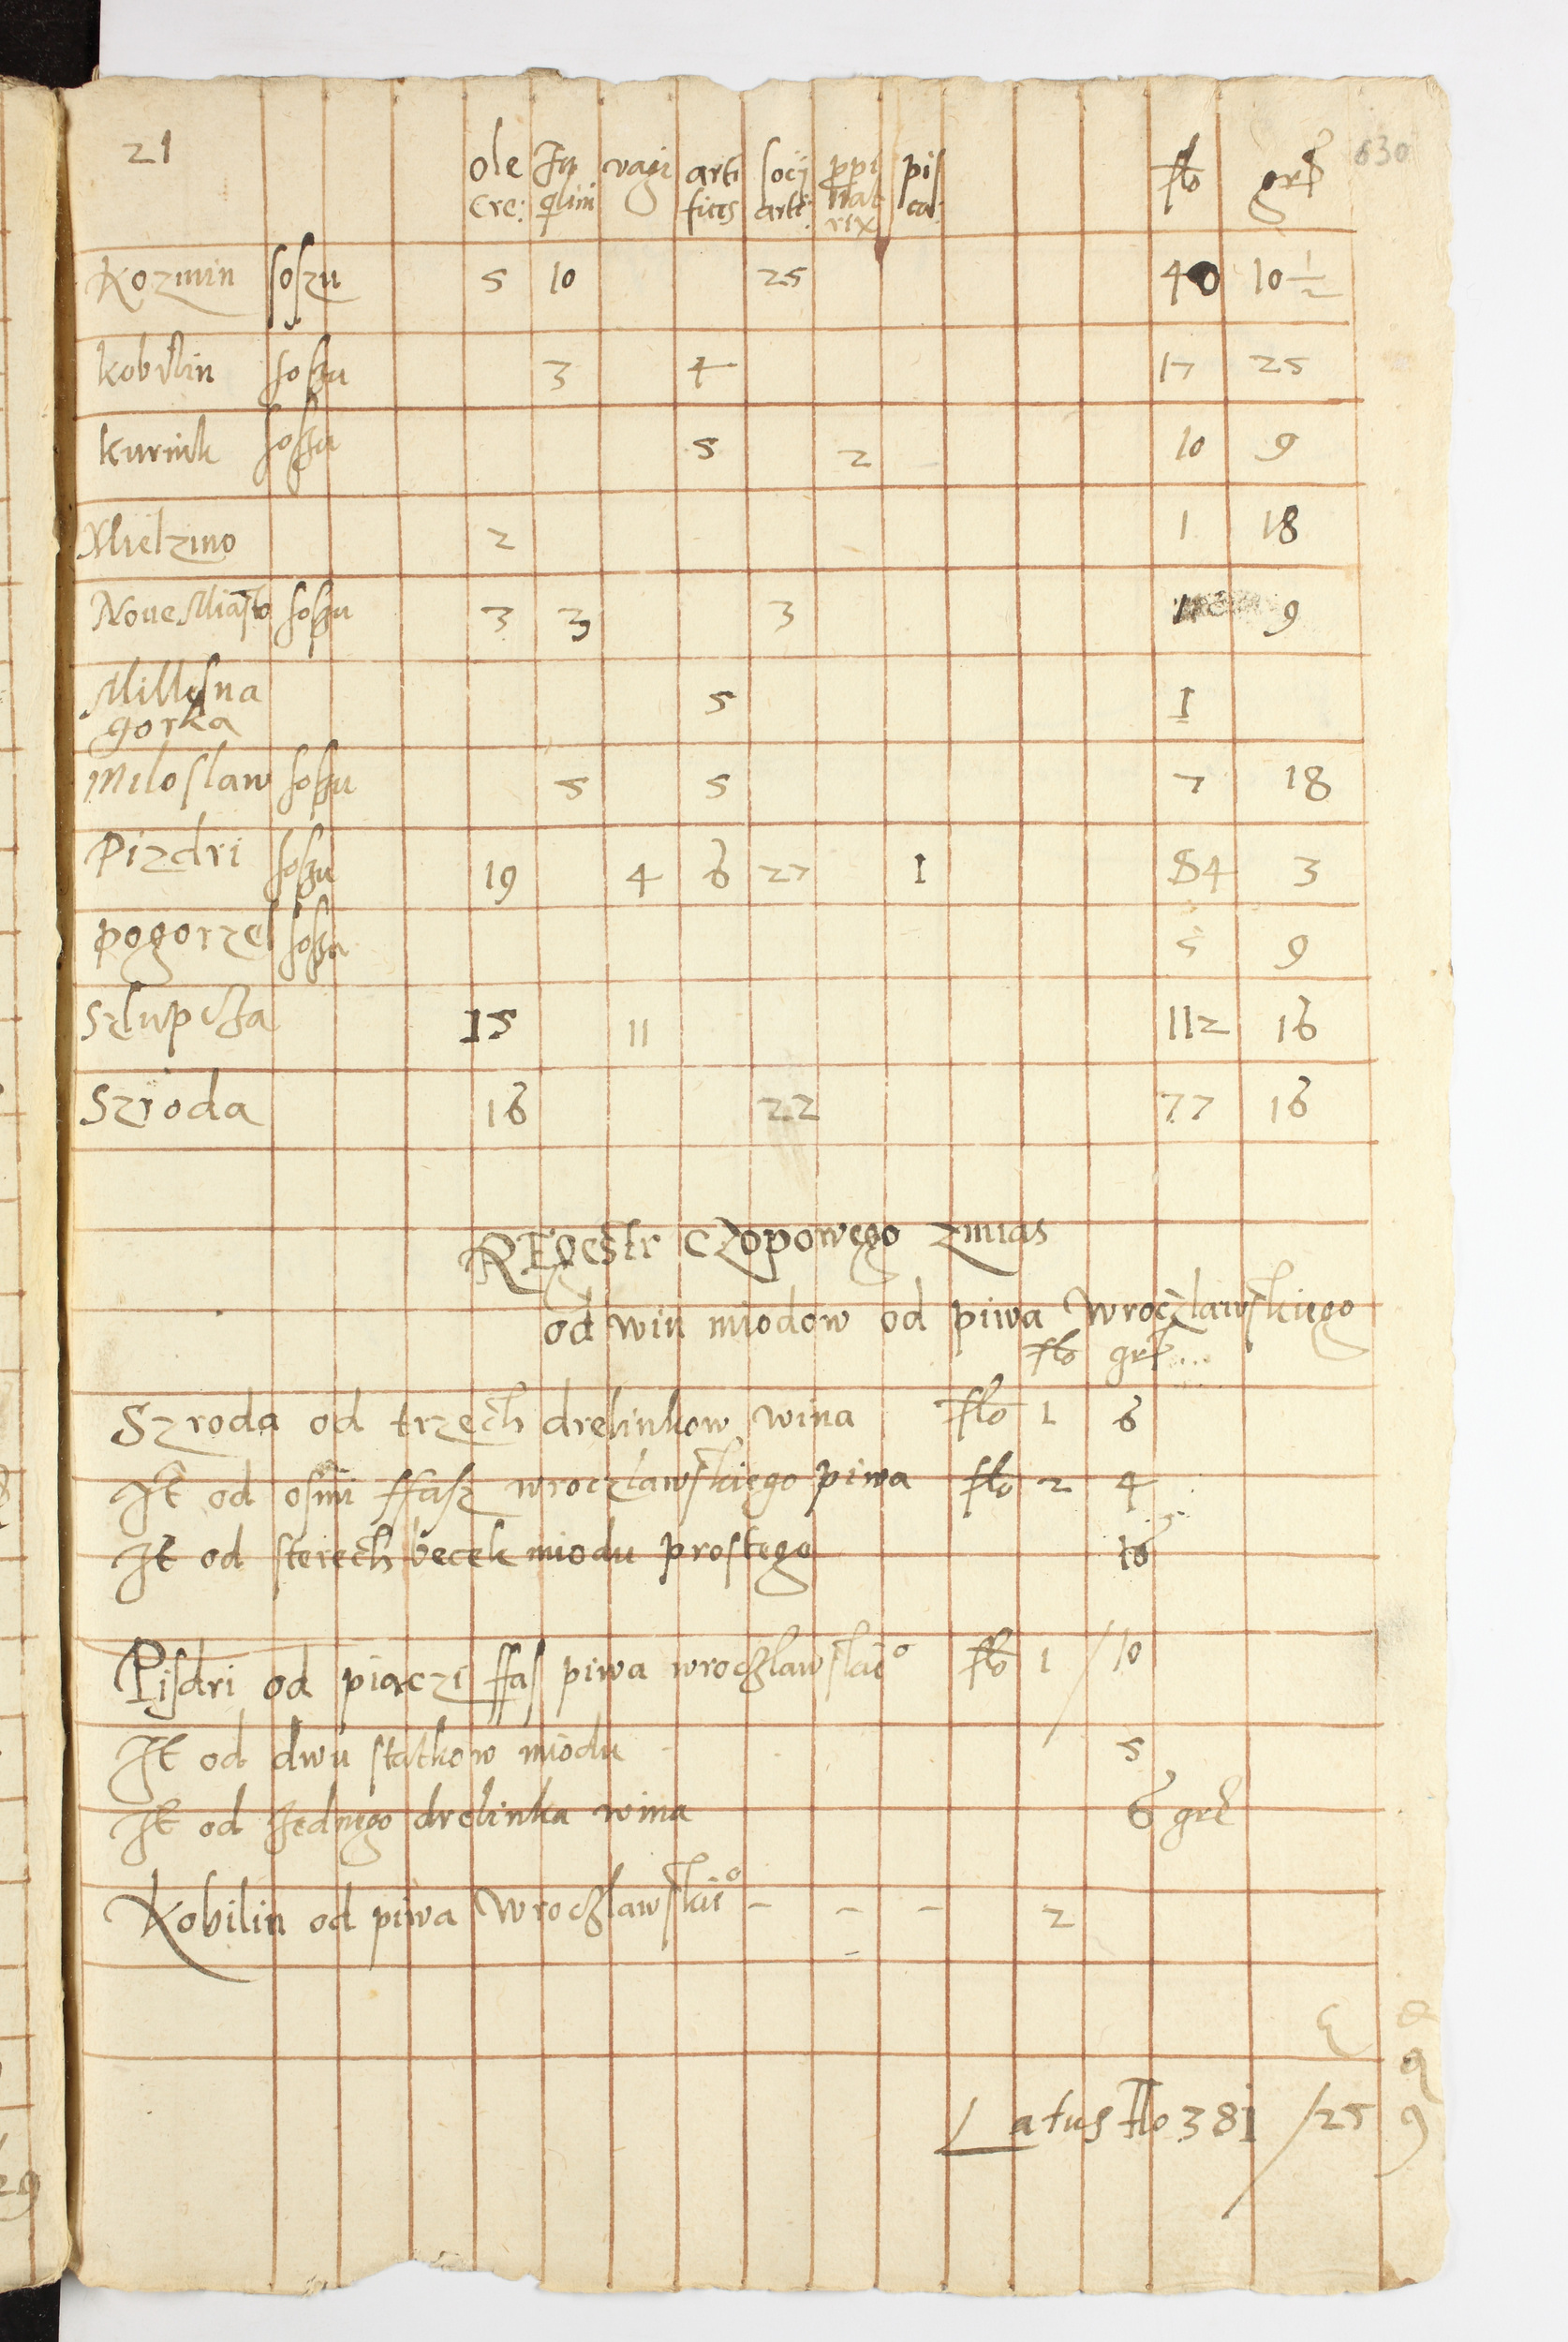 21 630
ole In vagi arti socij ppi pis flo gr
cre: qlini fices arti: nat cat:
rix
Kozmin soszu 5 10 25 40 10 1/2
kobilin soszu 3 4 17 25
kurnik soszu 5 2 10 9
Mielzino 2 1 18
Noue Miasto soszu 3 3 3 9
Millosna 5 1
gorka
Miloslaw soszu 5 5 7 18
Pizdri soszu 19 4 6 27 1 84 3
pogorzel soszu 5 9
Szlupcza 15 11 112 16
Szroda 16 22 77 16
REgestr czopowego zmias
od win miodow od piwa wroczlawskiego
flo gr...
Szroda od trzech drelinkow wina flo 1 6
It od osmi ffasz wroczlawskiego piwa flo 2 4
It od sterech becek miodu prostego 16
Pisdri od piaczi ffas piwa wroczlawskie° flo 1 / 10
It od dwu statkow miodu 5
It od Jednego drelinka wina 6 gr
Kobilin od piwa wroczlawskie° - - - 2
Latus flo 381 / 25 9